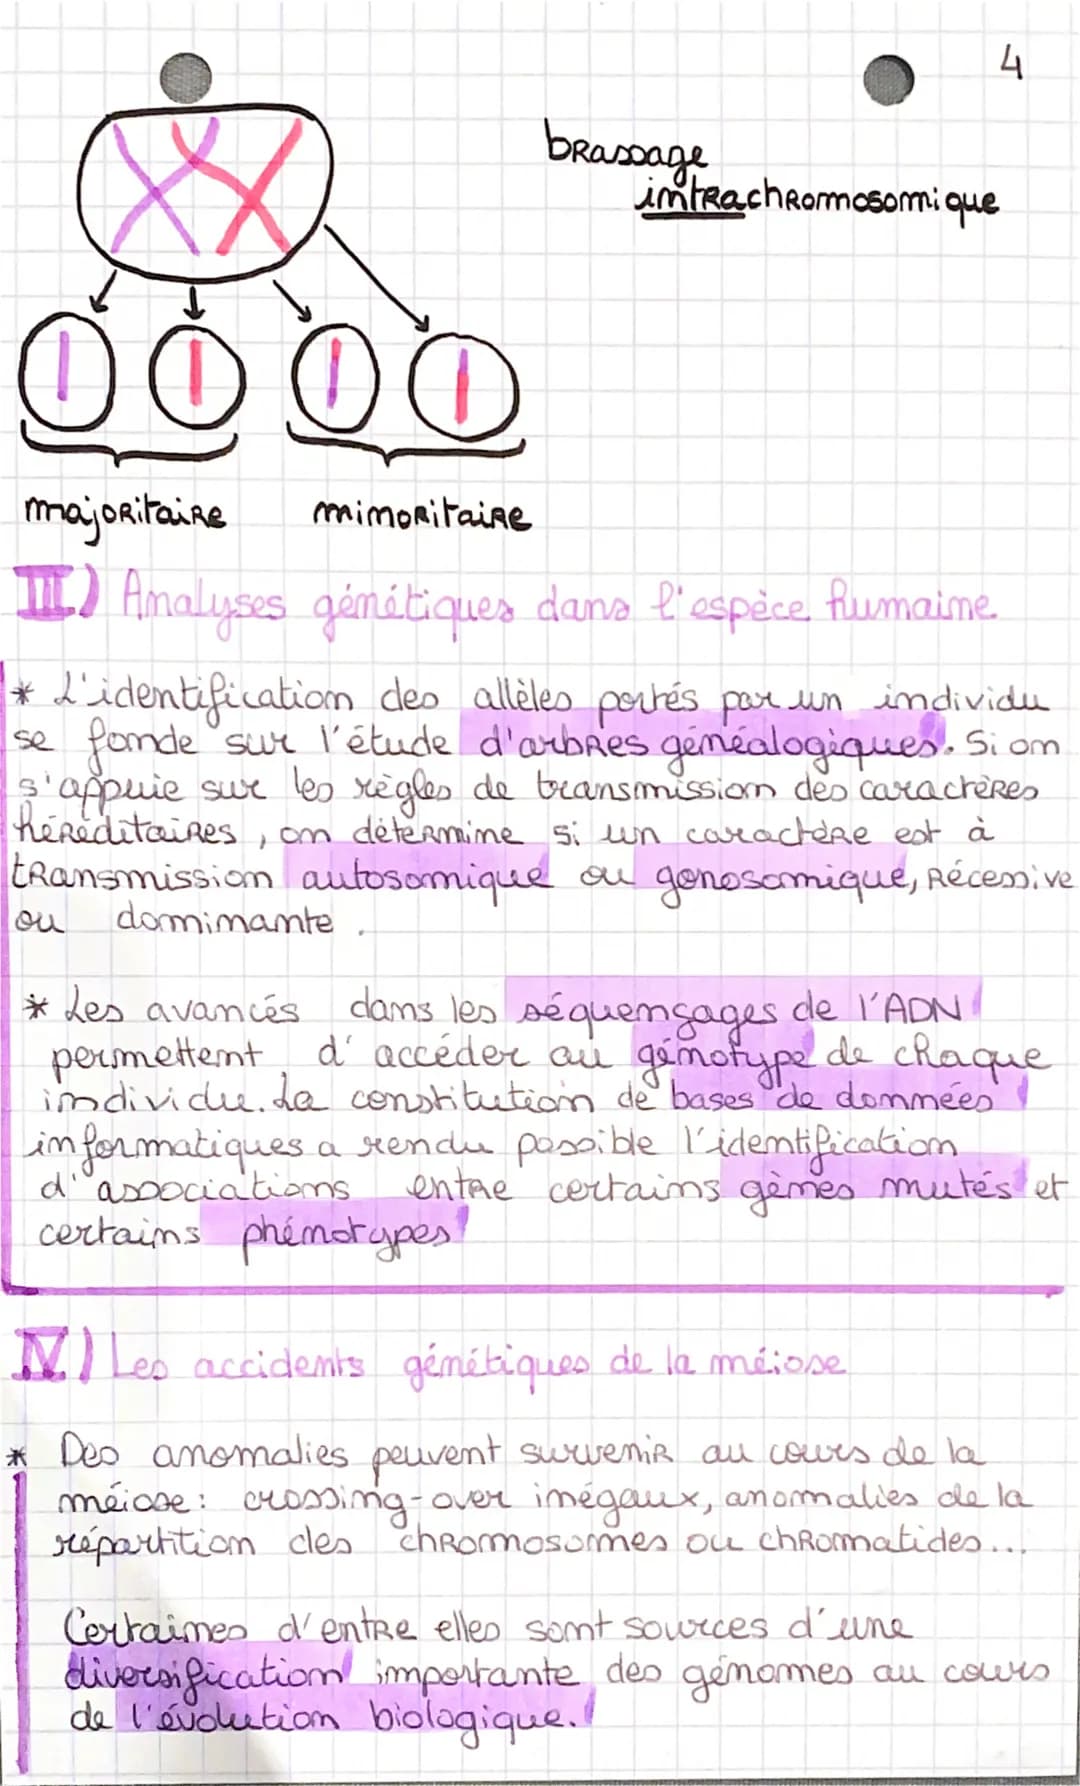 4
brassage
intrachromosomique
majoritaire minoritaire
III) Analyses génétiques dans l'espèce humaine
* L'identification des allèles portés par un individu
se fonde sur l'étude d'arbres généalogiques. Si on
s'appuie sur les règles de transmission des caractères
héréditaires, on détermine si un caractère est à
transmission autosomique ou gonosomique, récessive
ou dominante.
* Les avancés dans les séquençages de l'ADN
permettent d'accéder au génotype de chaque
individu. La constitution de bases de données
informatiques a rendu possible l'identification
d'associations entre certains gènes mutés et
certains phénotypes
IV) Les accidents génétiques de la méiose
* Des anomalies peuvent survenir au cours de la
méiose : crossing-over inégaux, anomalies de la
répartition des chromosomes ou chromatides...
Certaines d'entre elles sont sources d'une
diversification importante des génomes au cours
de l'évolution biologique.